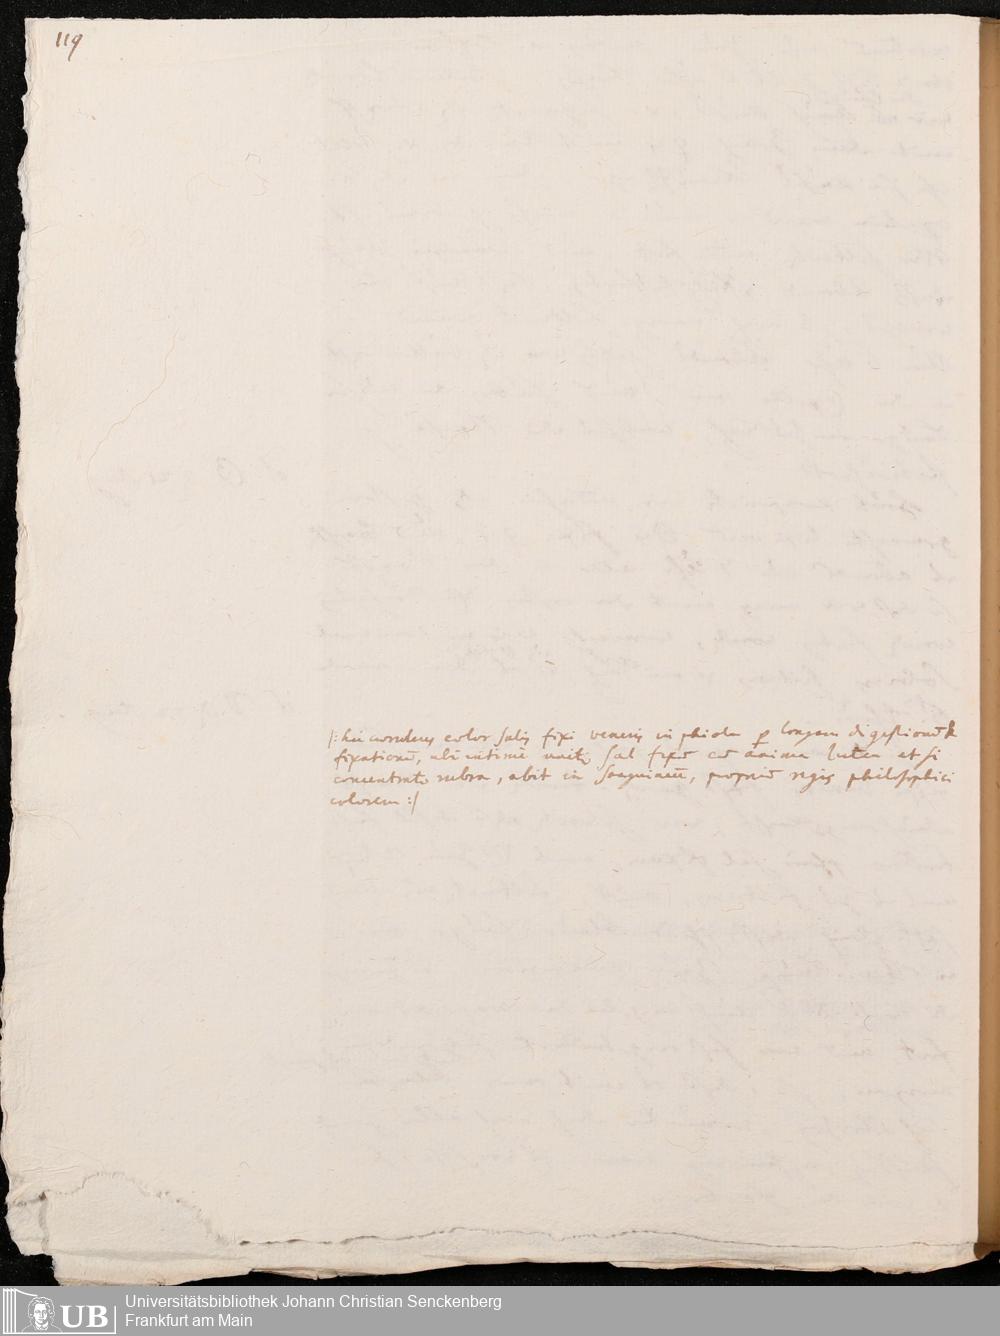 119
|: hic coeruleus color salis fixi veneris in phiola p longam digestionem &
fixationem, ubi intimè unitū sal fixū cū anima lutea et si
concentratū rubra, abit in sanguineū, propriū regis philosophici
colorem :|
Universitätsbibliothek Johann Christian Senckenberg
Frankfurt am Main
UB